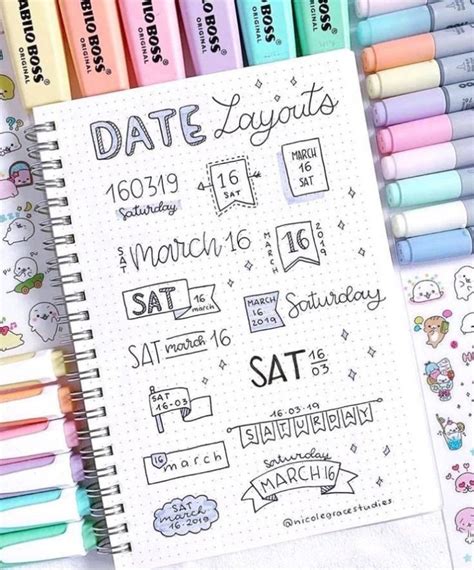 STABILO BOSS
ORIGINAL
STABILO BOSS
ORIGINAL
BOSS
ORIGINAL
DATE Layouts
160319
Saturday
16
SAT
MARCH
16
SAT
SAT March 16
MARCH 16 2019
SAT 16 march
MARCH
16
2019
Saturday
SAT march 16
SAT 16
03
SAT
16-03
16·03·19
SATURDAY
16 march
Saturday
MARCH 16
SAT
march
16·2019
@nicolegracestudies